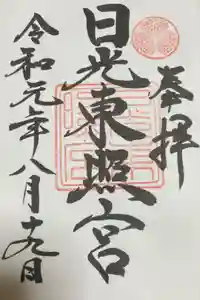 奉拝
日光東照宮
令和元年八月十九日